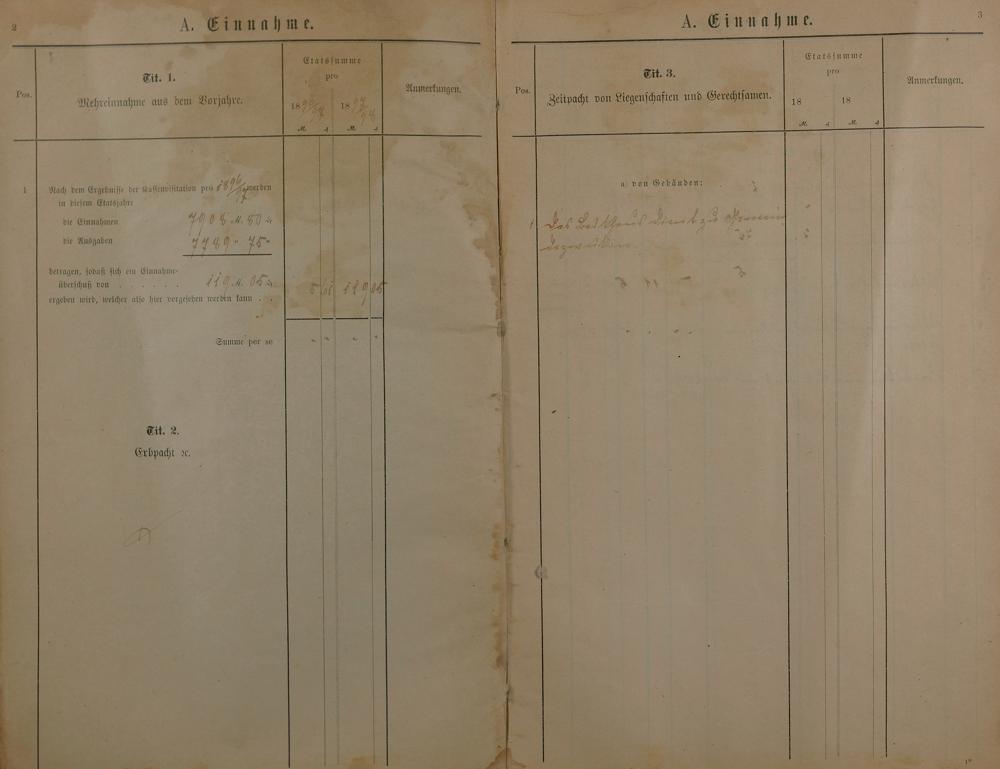 2
A. Einnahme.
Pos.
Tit. 1.
Mehreinnahme aus dem Vorjahre.
Etatssumme
pro
1896/97 1897/98
M. ₰ M. ₰
Anmerkungen.
1
Nach dem Ergebnisse der Kassenvisitation pro 1896/97 werden
in diesem Etatsjahre
die Einnahmen 7908 M. 80 ₰
die Ausgaben 7789 " 75 "
betragen, sodaß sich ein Einnahme-
überschuß von . . . . . . 119 M. 05 ₰
ergeben wird, welcher also hier vorgesehen werden kann . . 119 05
Summe per se
Tit. 2.
Erbpacht ꝛc.
3
A. Einnahme.
Pos.
Tit. 3.
Zeitpacht von Liegenschaften und Gerechtsamen.
Etatssumme
pro
18 18
M. ₰ M. ₰
Anmerkungen.
a) von Gebäuden:
1 Das dient zu
1*